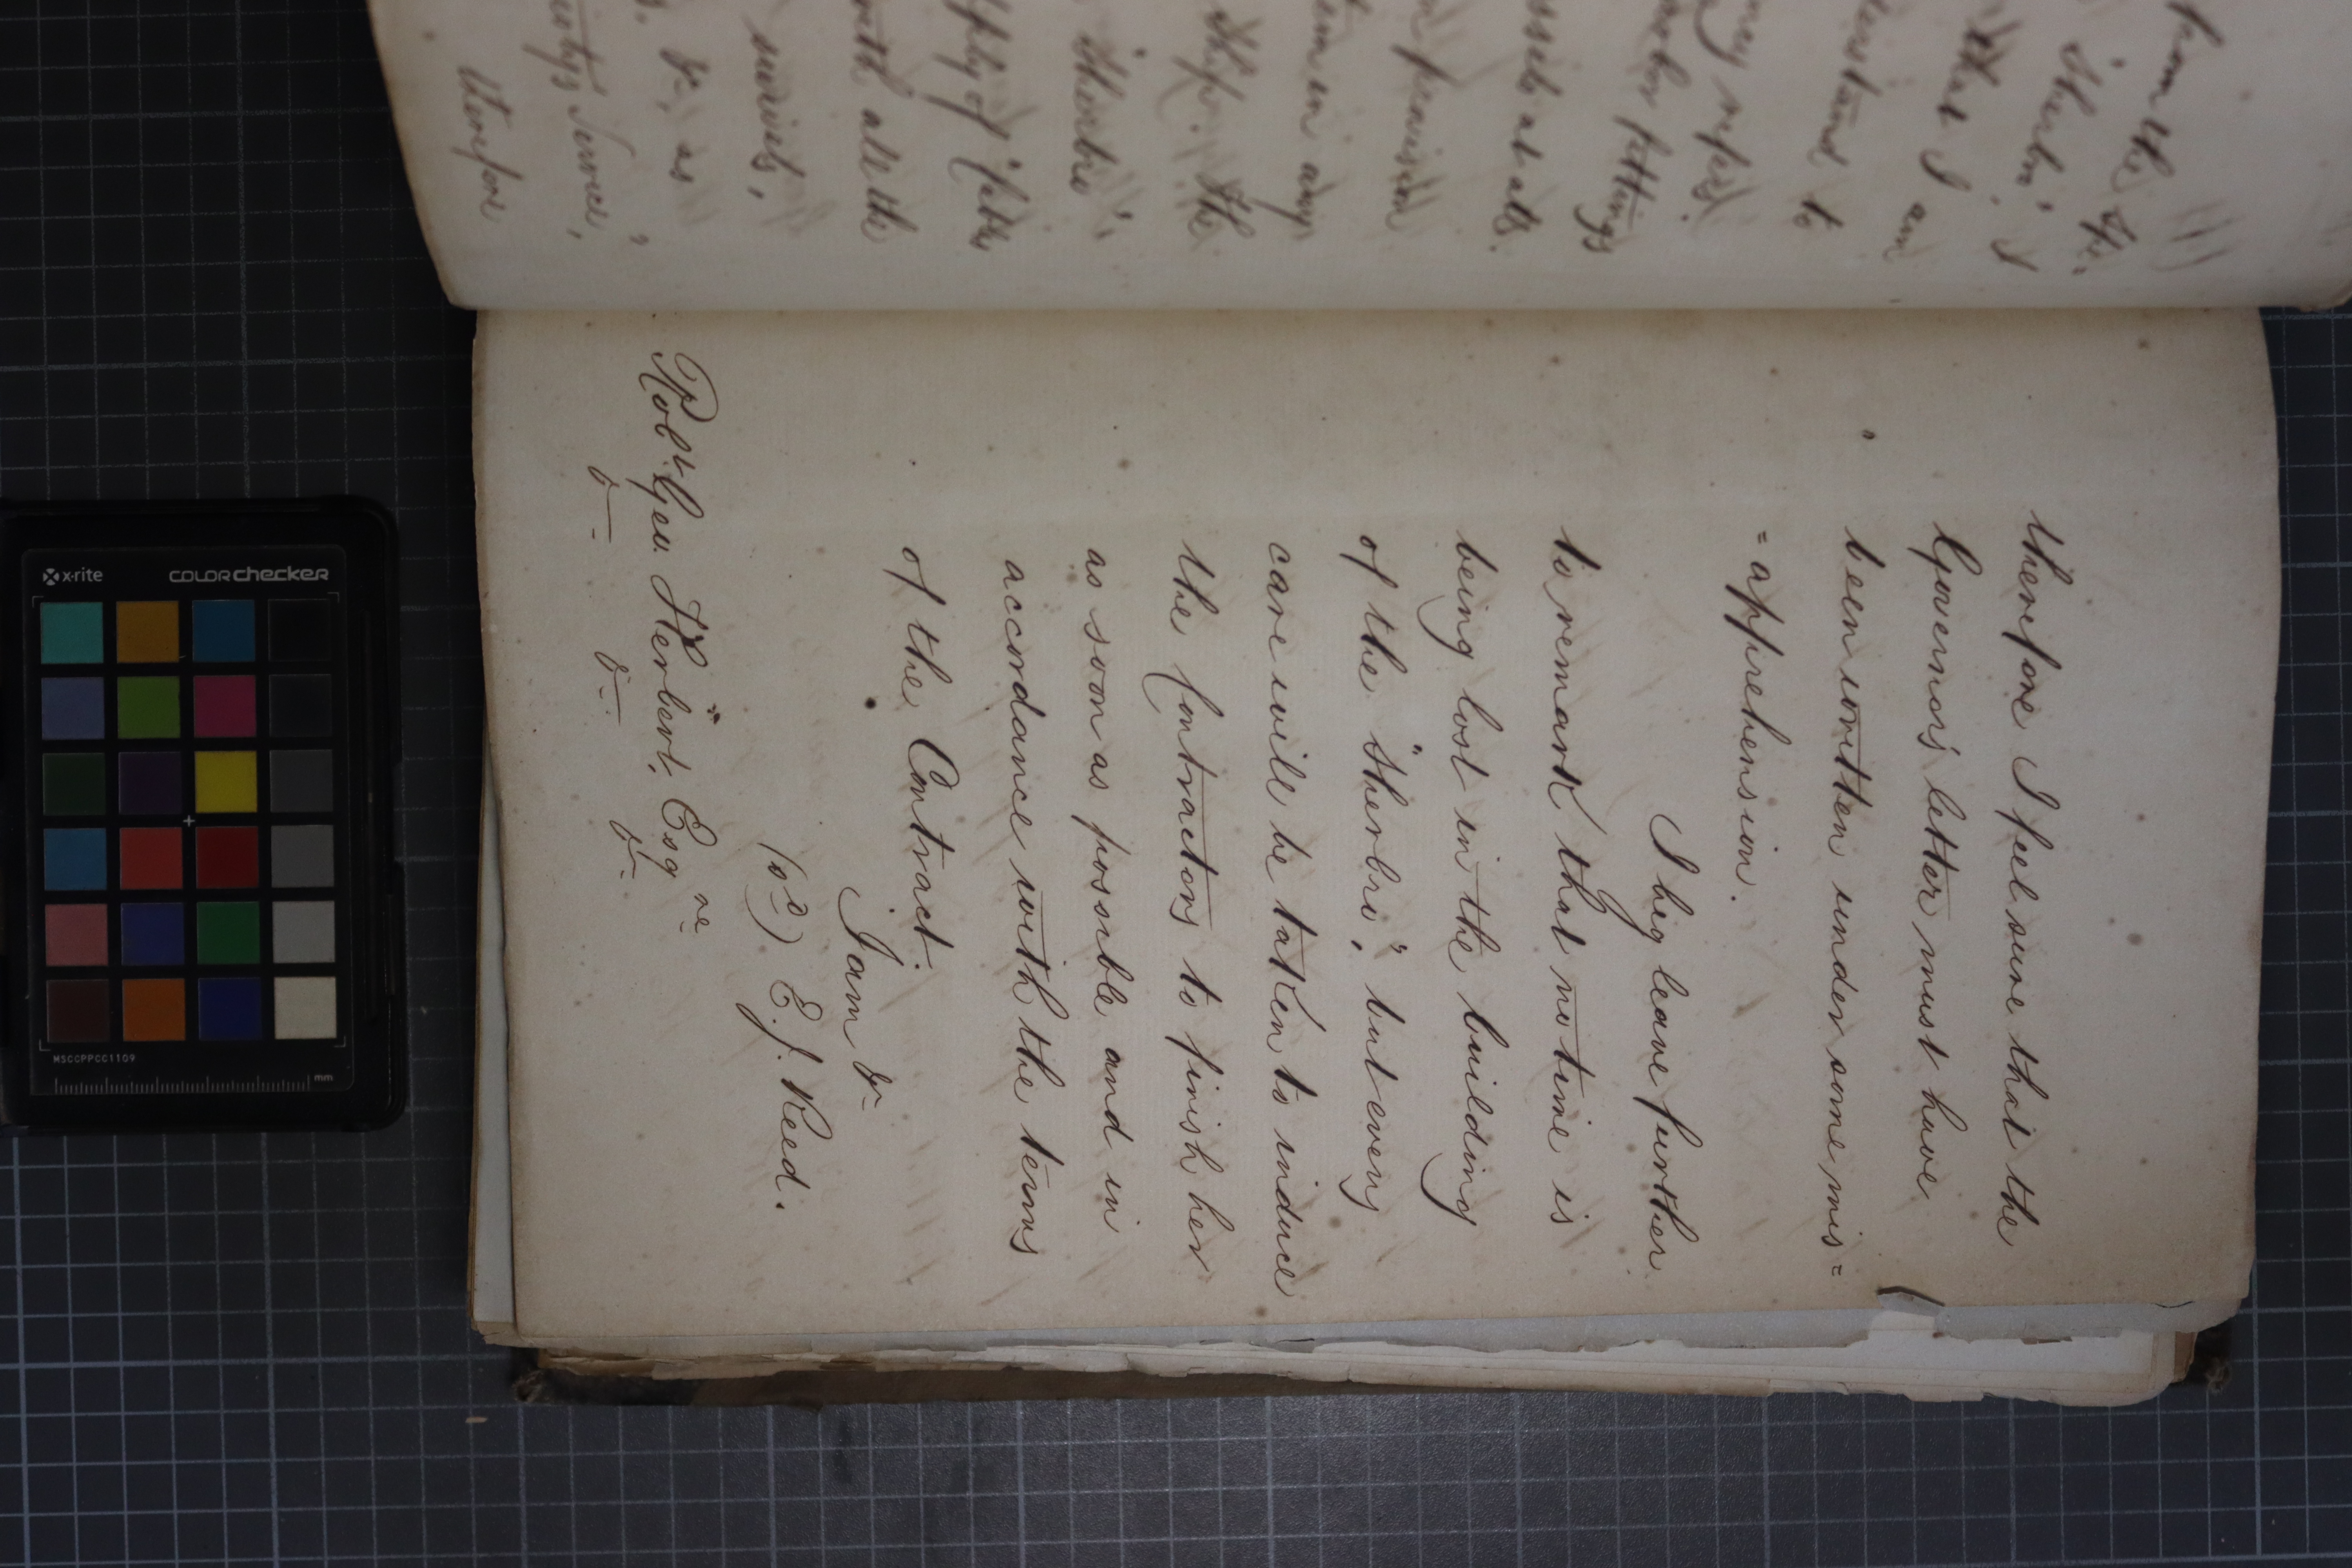 from the
"Sherbro". I
that I am
to
fittings
at all.
provision
in any
Ship. The
"Sherbro",
of
with all the
&c, as
Service,"
therefore
therefore I feel sure that the
Governor's letter must have
been written under some mis=
=apprehension.
I beg leave further
to remark that no time is
being lost in the building
of the "Sherbro", but every
care will be taken to induce
the Contractors to finish her
as soon as possible and in
accordance with the terms
of the Contract.
I am &c
(sd) E. J. Reed.
Robt. Geo. W. Herbert, Esqre
&c &c &c
x-rite colorchecker
MSCCPPCC1109
mm